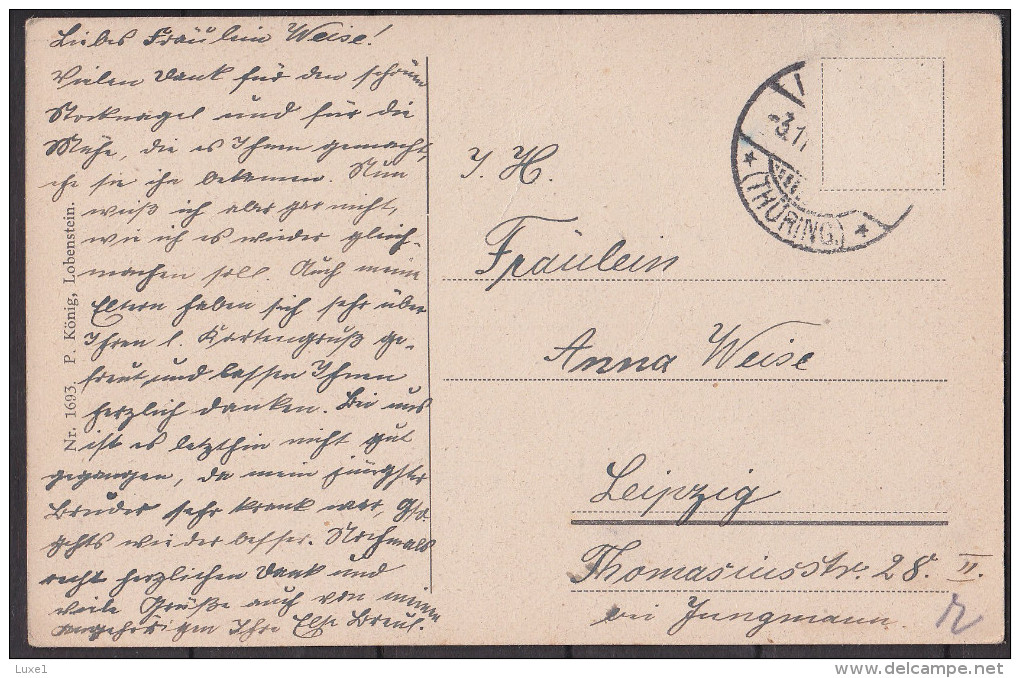 Liebes Fräulein Weise!
Vielen Dank für den schönen
Stocknagel und für die
Mühe, die es Ihnen gemacht,
ehe sie ihn bekamen. Nun
weiß ich aber gar nicht,
wie ich es wieder gleich-
machen soll. Auch meine
Eltern haben sich sehr über
Ihren l. Kartengruß ge-
freut und lassen Ihnen
herzlich danken. Bei uns
ist es letzthin nicht gut
gegangen, da mein jüngster
Bruder sehr krank war,
gehts wieder besser. Nochmals
recht herzlichen Dank und
viele Grüße auch von meinen
Angehörigen Ihre Else Breul.
Nr. 1693. P. König, Lobenstein.
-3.1
* (THÜRING.) *
I. H.
Fräulein
Anna Weise
Leipzig
Thomasiusstr. 28. II.
bei Jungmann.
Luxe1
delcampe.net